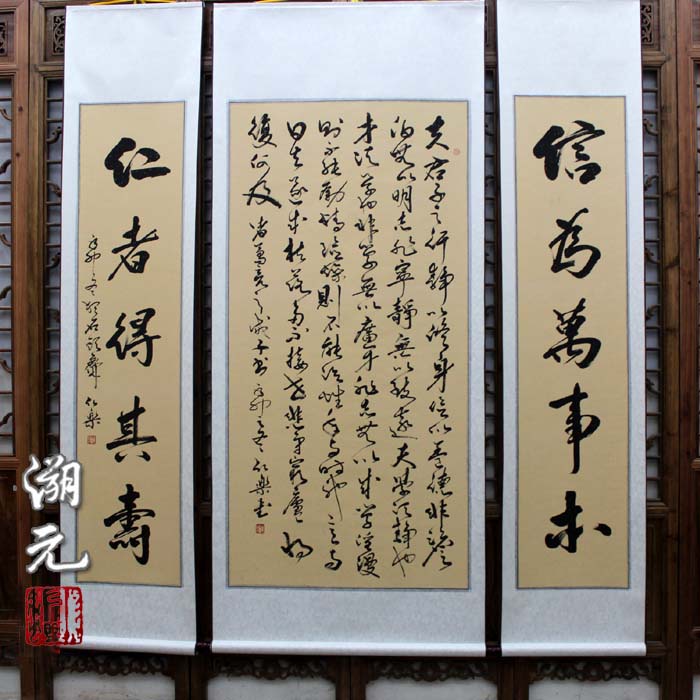 信為萬事本
夫君子之行靜以修身儉以養德非澹
泊無以明志非寧靜無以致遠夫學須靜也
才須學也非學無以廣才非志無以成學淫漫
則不能勵精險躁則不能治性年與時馳意與
日去遂成枯落多不接世悲守窮廬將
復何及 諸葛亮誡子書 辛卯之冬 仁樂書
仁者得其壽
辛卯之冬 仁樂
溯元